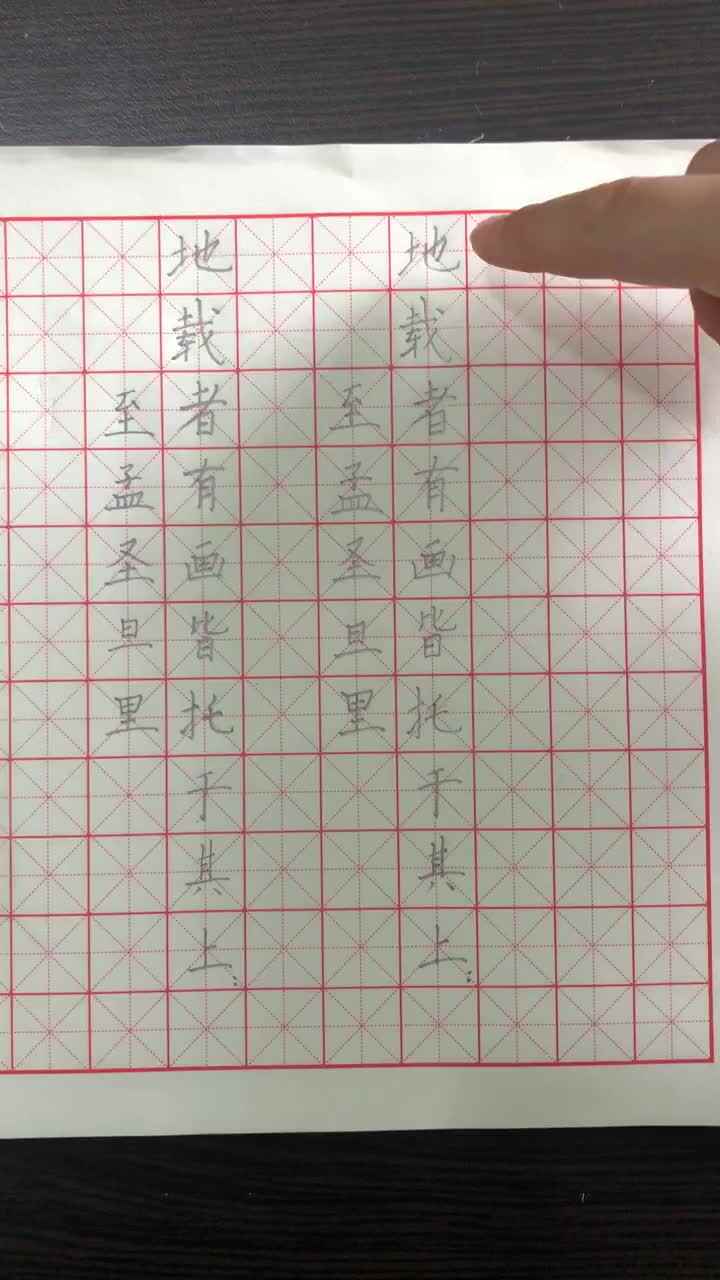 地载者有画皆托于其上：
至孟圣旦里
地载者有画皆托于其上：
至孟圣旦里